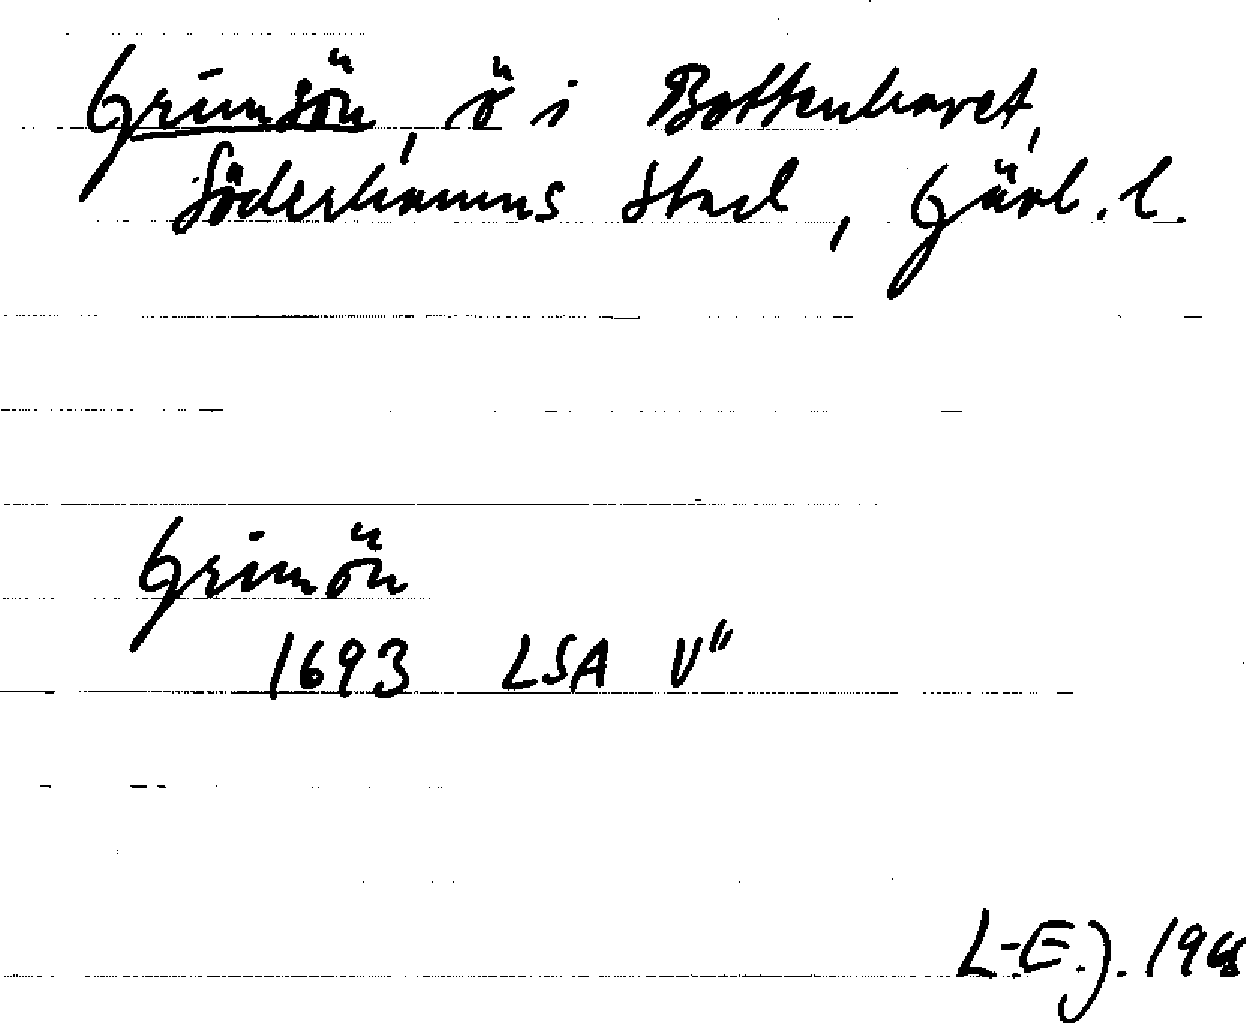 Grimsön, ö i Bottenhavet,
Söderhamns stad, Gävl. l.
Grimön
1693 LSA V"
L-E.J.